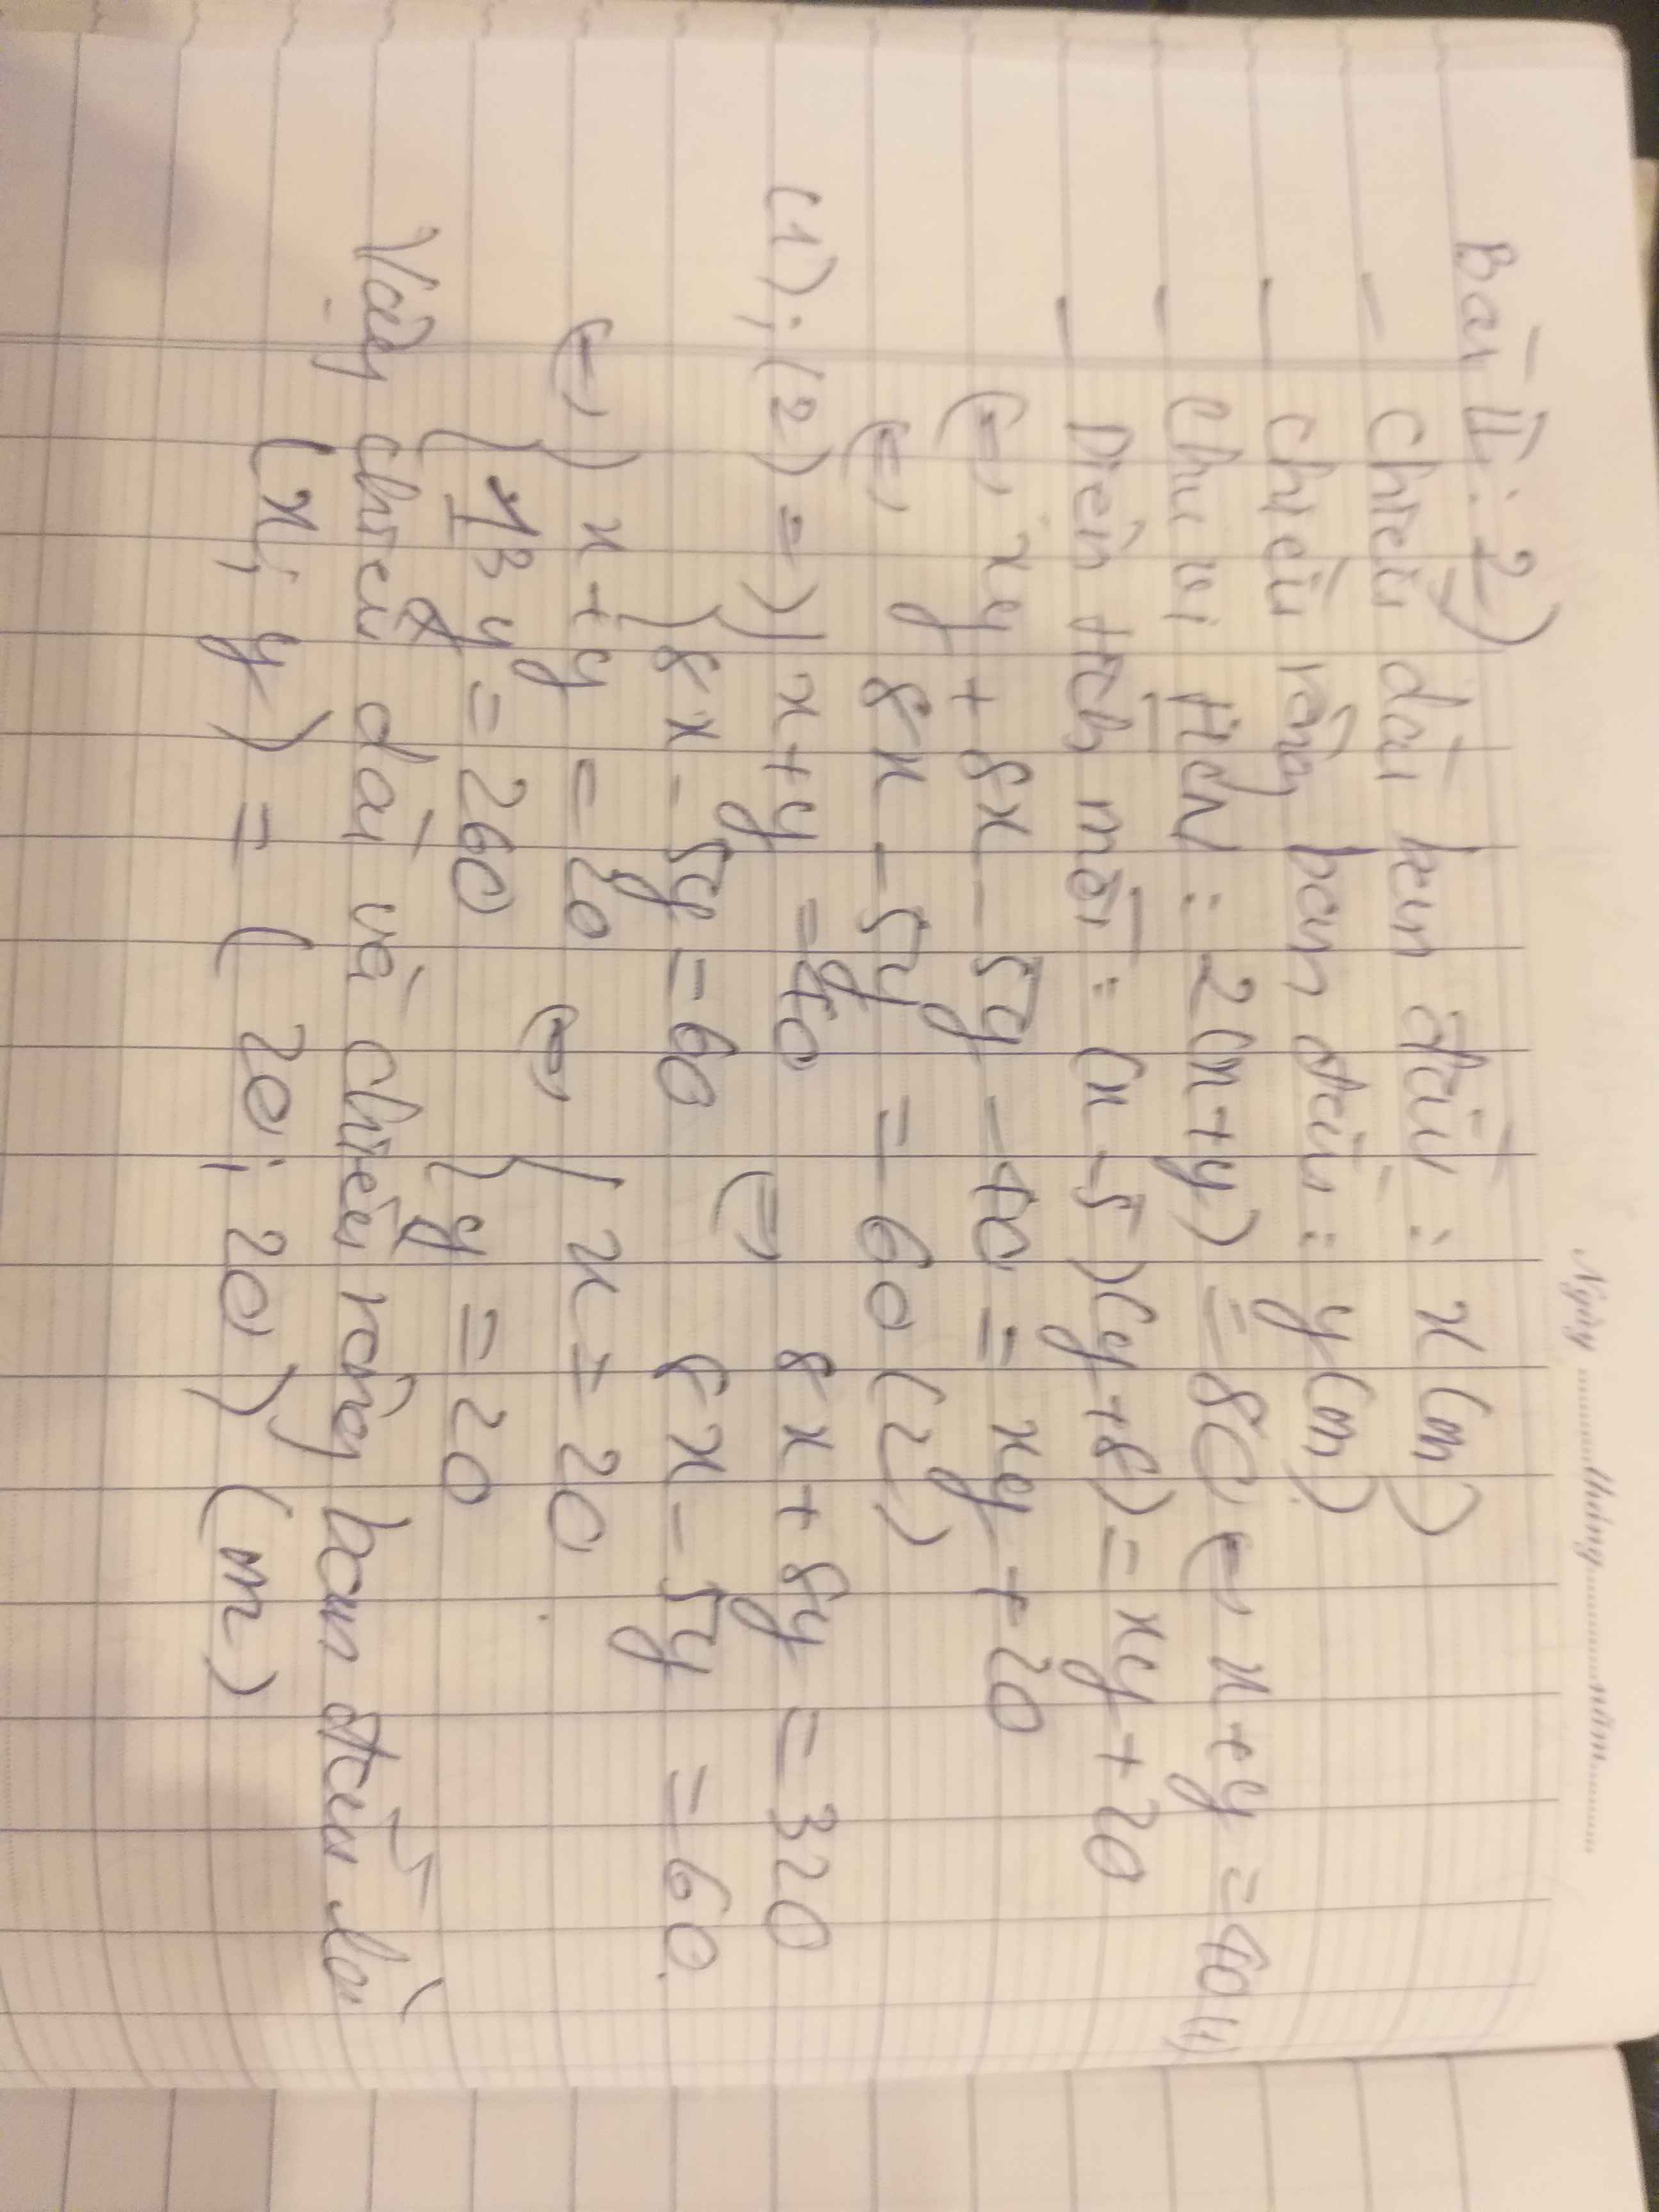 Ngày ............tháng............năm............
Bài II: 2)
- Chiều dài ban đầu : x (m)
- Chiều rộng ban đầu : y (m)
- Chu vi HCN : 2(x+y) = 80 <=> x+y = 40 (1)
- Diện tích mới : (x-5)(y+8) = xy + 20
<=> xy + 8x - 5y - 40 = xy + 20
<=> 8x - 5y = 60 (2)
(1); (2) => { x+y = 40 8x + 8y = 320
{ 8x - 5y = 60 <=> 8x - 5y = 60
<=> { x+y = 20 <=> { x = 20
{ 13y = 260 { y = 20
Vậy chiều dài và chiều rộng ban đầu là
(x; y) = (20; 20) (m)